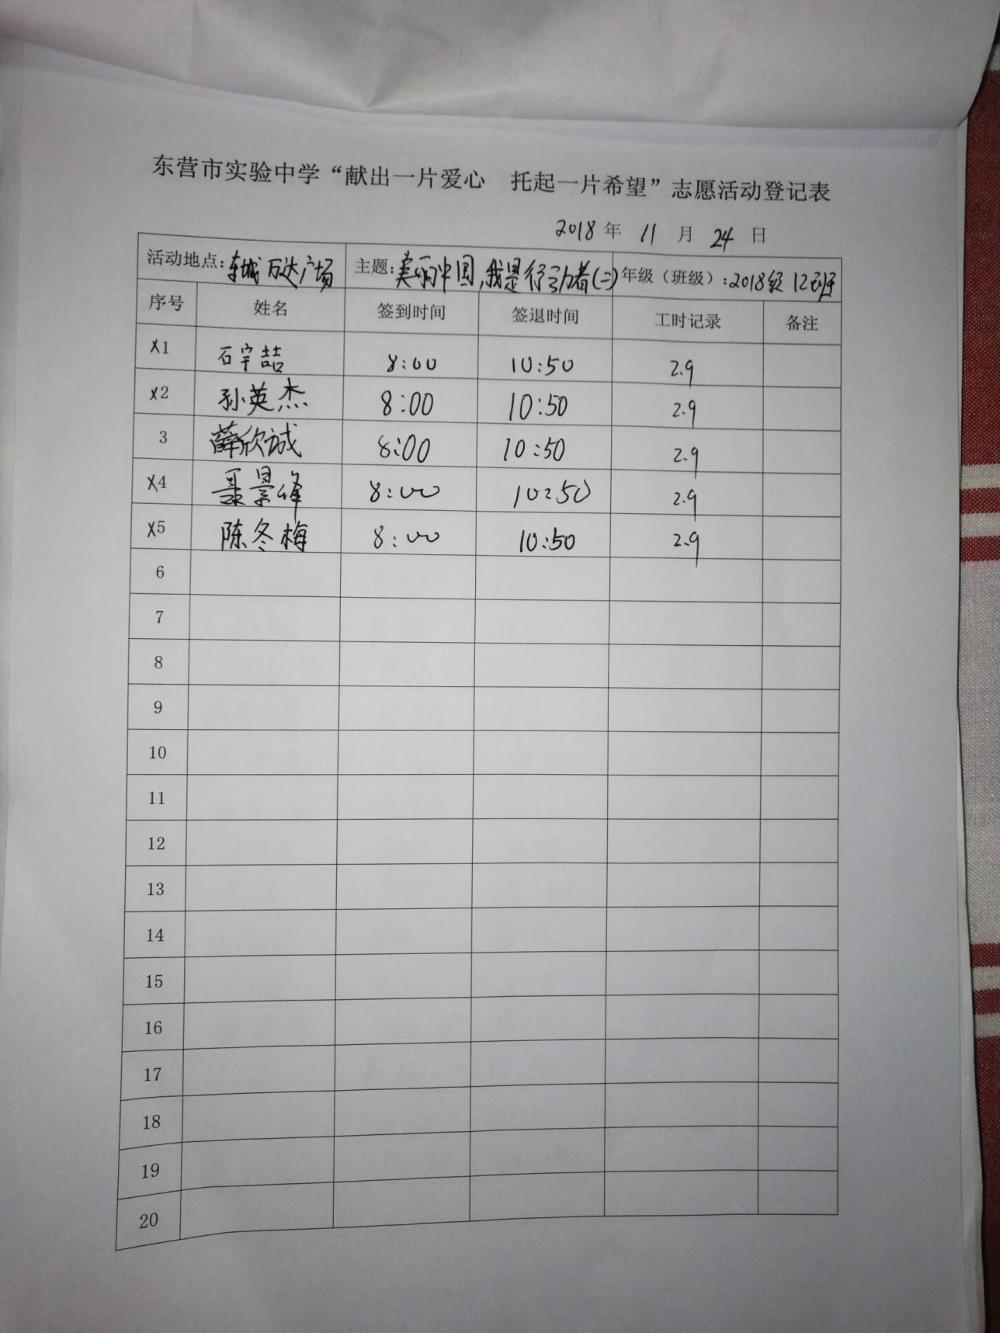 东营市实验中学“献出一片爱心 托起一片希望”志愿活动登记表
2018 年 11 月 24 日
活动地点:东城万达广场 主题:美丽中国,我是行动者(二) 年级（班级）:2018级 12班
序号 姓名 签到时间 签退时间 工时记录 备注
x1 石宇喆 8:00 10:50 2.9
x2 孙英杰 8:00 10:50 2.9
3 薛欣诚 8:00 10:50 2.9
x4 聂景峰 8:00 10:50 2.9
x5 陈冬梅 8:00 10:50 2.9
6
7
8
9
10
11
12
13
14
15
16
17
18
19
20